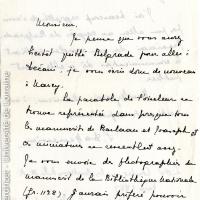 Monsieur,
Je pense que vous avez
quitté Belgrade pour aller
je vous écris donc de nouveau
à Nancy.
La parabole de l'oiseleur se
trouve représentée dans presque tous
les manuscrits de Barlaam et Joasaph et
ces miniatures se ressemblent assez.
Je vous envoie des photographies du
manuscrit de la Bibliothèque Nationale
(gr. 1128). J'aurais préféré pouvoir
Université de Lorraine